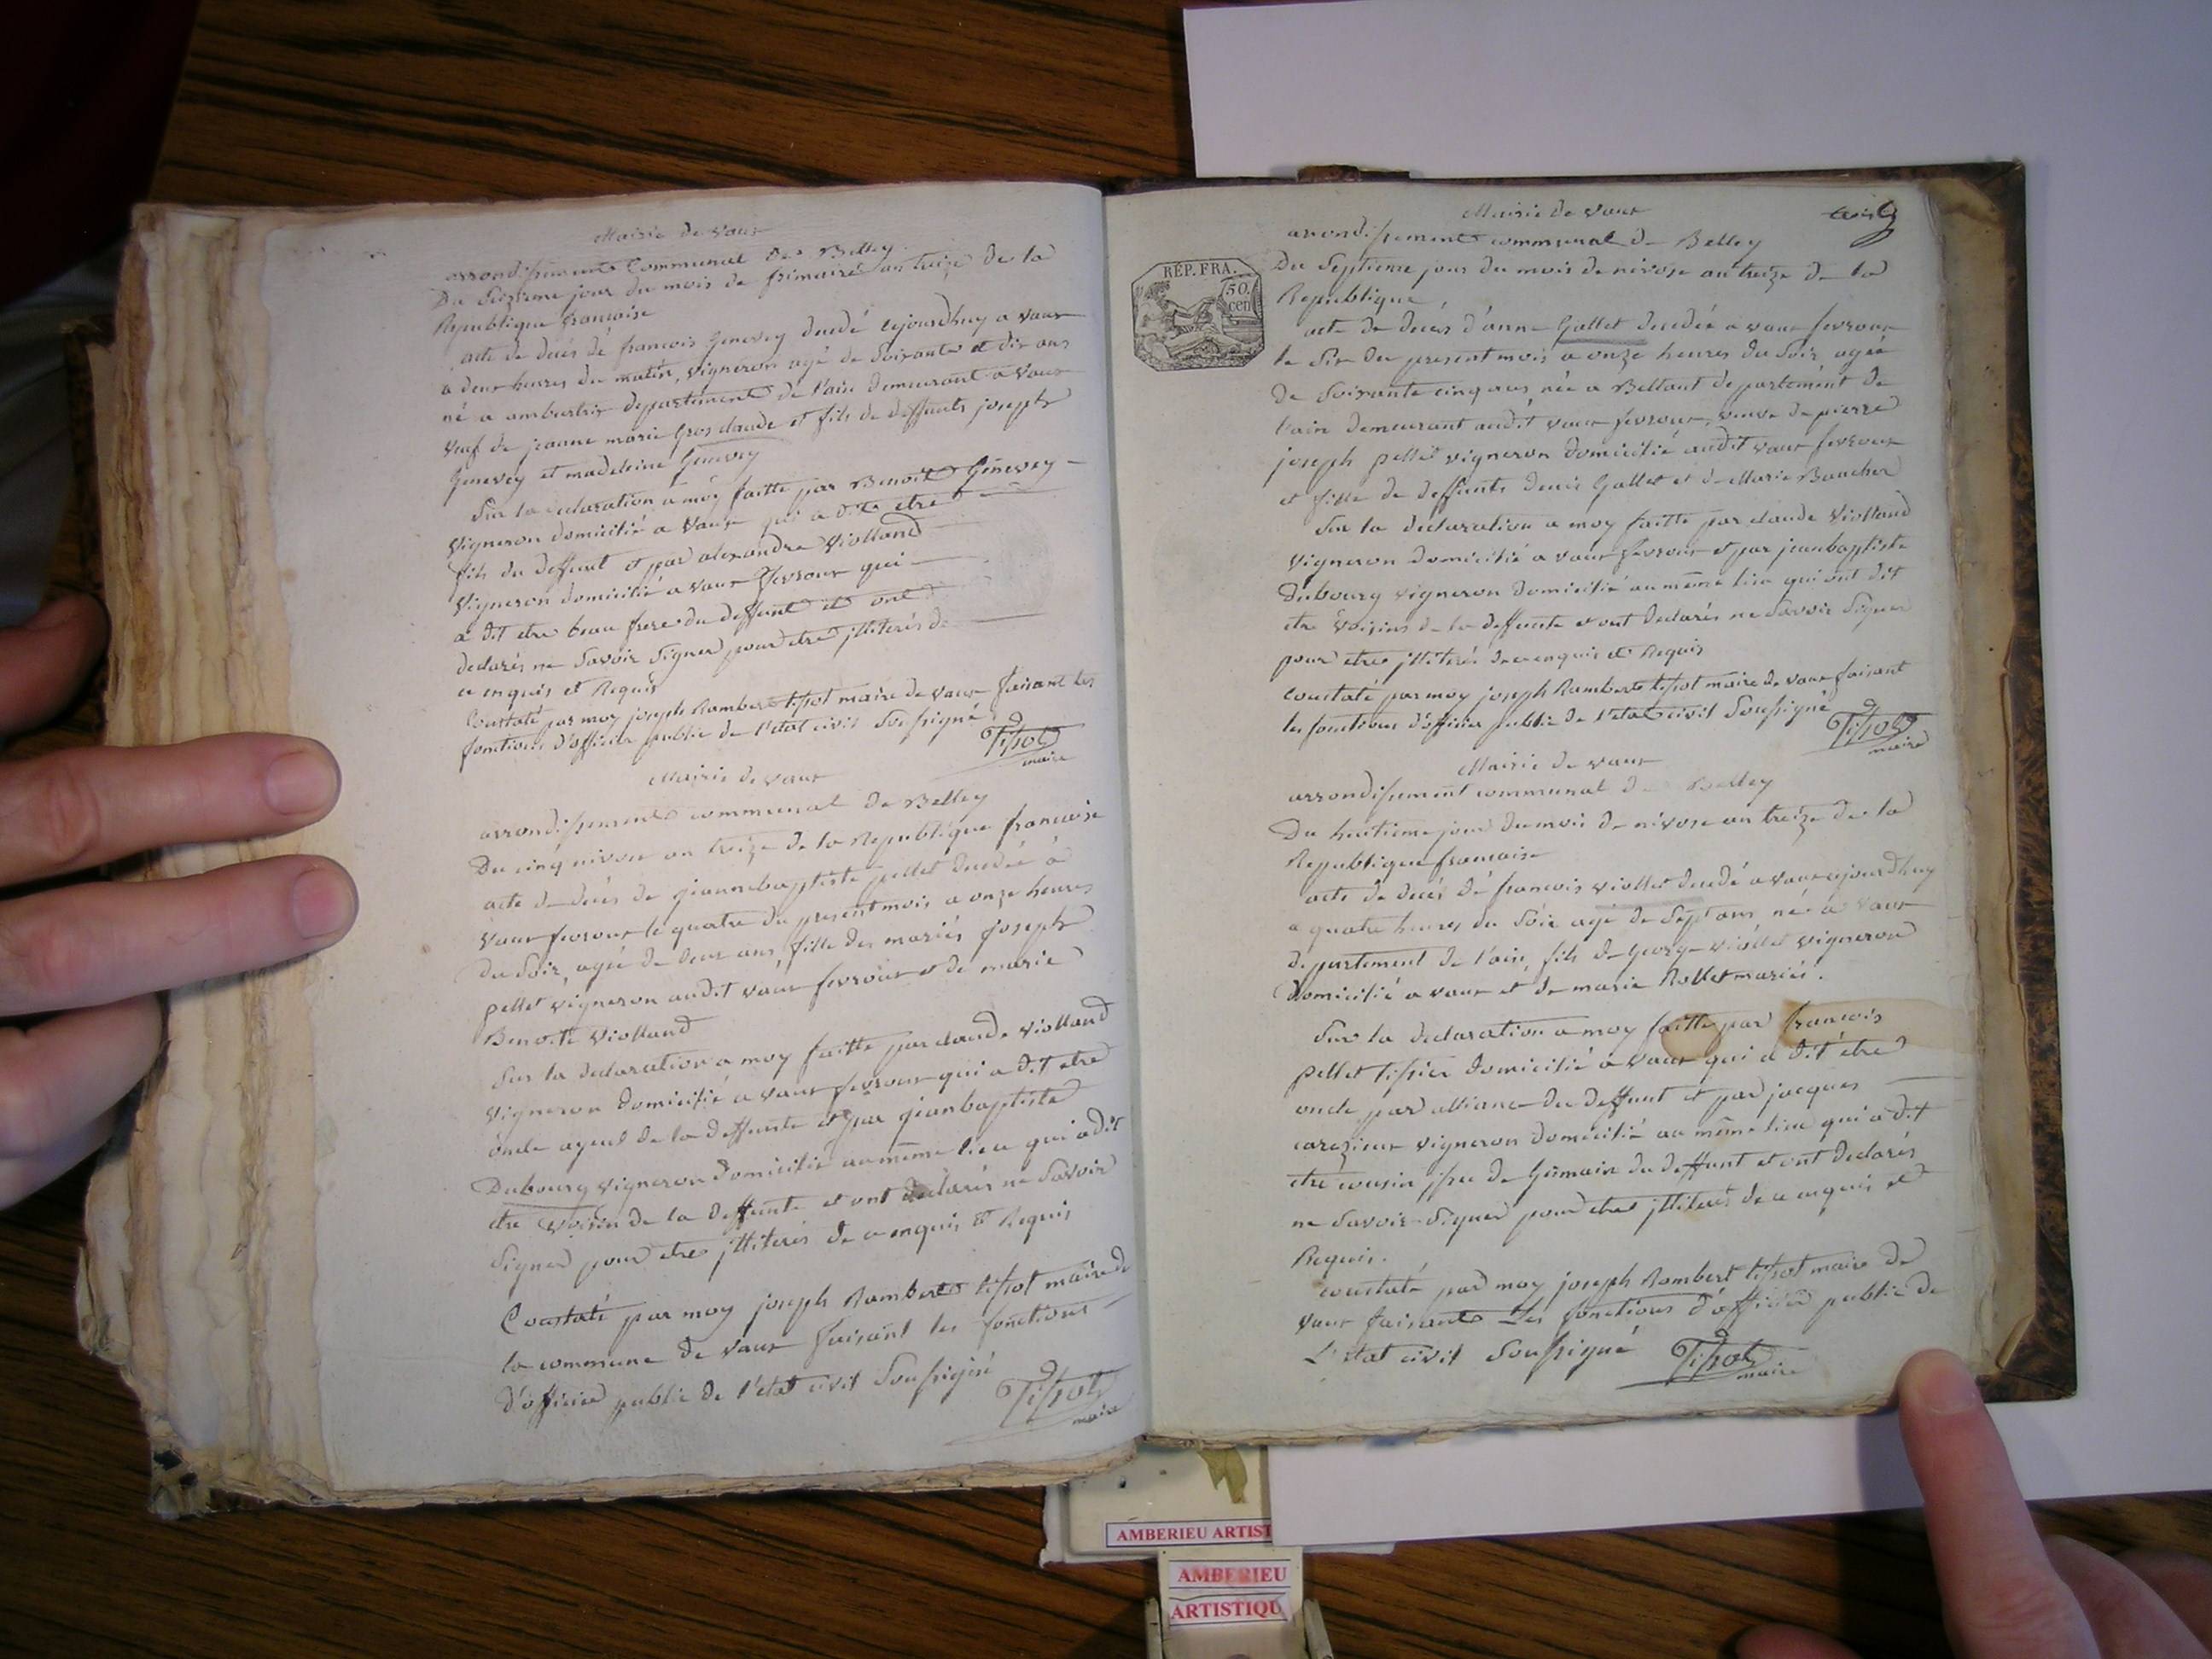 Mairie de vaux
arrondissement Communal de Belley
Du seizieme jour du mois de frimaire an treize de la
Republique francoise
acte de decés de francois Genevey decedé aujourdhuy a vaux
a deux heures du matin, vigneron agé de soixante et dix ans
né a departement de l'ain demeurant a vaux
veuf de jeanne marie Gros claude et fils de deffunts joseph
Genevey et madeleine Genevey
Sur la declaration a moy faitte par Benoit Genevey
vigneron domicilié a vaux qui a dit etre
fils du deffunt et par alexandre Violland
vigneron domicilié a vaux fevroux qui
a dit etre beau frere du deffunt et ont
declarés ne savoir signer pour etre jlliterés de
ce enquis et Requis
Constaté par moy joseph Rambert tissot maire de vaux faisant les
fonctions d'officier public de l'etat civil soussigné
Tissot
maire
Mairie de vaux
arrondissement communal de Belley
Du cinq nivose an treize de la Republique francoise
acte de decés de jeannebaptiste pellet decedée à
vaux fevroux le quatre du present mois a onze heures
du soir, agée de deux ans, fille des mariés joseph
pellet vigneron audit vaux fevroux et de marie
Benoite Violland
Sur la declaration a moy faitte par claude violland
vigneron domicilié a vaux fevroux qui a dit etre
oncle ayeul de la deffunte et par jeanbaptiste
Dubourg vigneron domicilié au même lieu qui a dit
etre voisin de la deffunte et ont declarés ne savoir
signer pour etre jlliterés de ce enquis et Requis
Constaté par moy joseph Rambert tissot maire de
la commune de vaux faisant les fonctions
d'officier public de l'etat civil soussigné
Tissot
maire
Mairie de vaux
arrondissement communal de Belley
RÉP. FRA.
50.
cen
Du septieme jour du mois de nivose an treize de la
Republique,
acte de decés d'anne Gallet decedée a vaux fevroux
le six du present mois a onze heures du soir, agée
de soixante cinq ans, née a Bettant departement de
l'ain demeurant audit vaux fevroux, veuve de pierre
joseph pellet vigneron domicilié audit vaux fevroux
et fille de deffunts denis Gallet et de Marie Boucher
Sur la declaration a moy faitte par claude Violland
vigneron domicilié a vaux fevroux et par jeanbaptiste
Dubourg vigneron domicilié au même lieu qui ont dit
etre voisins de la deffunte et ont declarés ne savoir signer
pour etre jlliterés de ce enquis et Requis
constaté par moy joseph Rambert tissot maire de vaux faisant
les fonctions d'officier public de l'etat civil soussigné
Tissot
maire
Mairie de vaux
arrondissement communal de Belley
Du huitieme jour du mois de nivose an treize de la
Republique francoise
acte de decés de francois viollet decedé a vaux aujourdhuy
a quatre heures du soir agé de sept ans né à vaux
departement de l'ain, fils de George viollet vigneron
domicilié a vaux et de marie Rollet mariés.
Sur la declaration a moy faitte par francois
pellet tissier domicilié a vaux qui a dit être
oncle par alliance du deffunt et par jacques
carezieux vigneron domicilié au même lieu qui a dit
etre cousin jssu de Germain du deffunt et ont declarés
ne savoir signer pour etre jlliterés de ce enquis et
Requis.
constaté par moy joseph Rambert tissot maire de
vaux faisant Les fonctions d'officier public de
L'etat civil soussigné
Tissot
maire
AMBERIEU ARTIST
AMBERIEU
ARTISTIQU